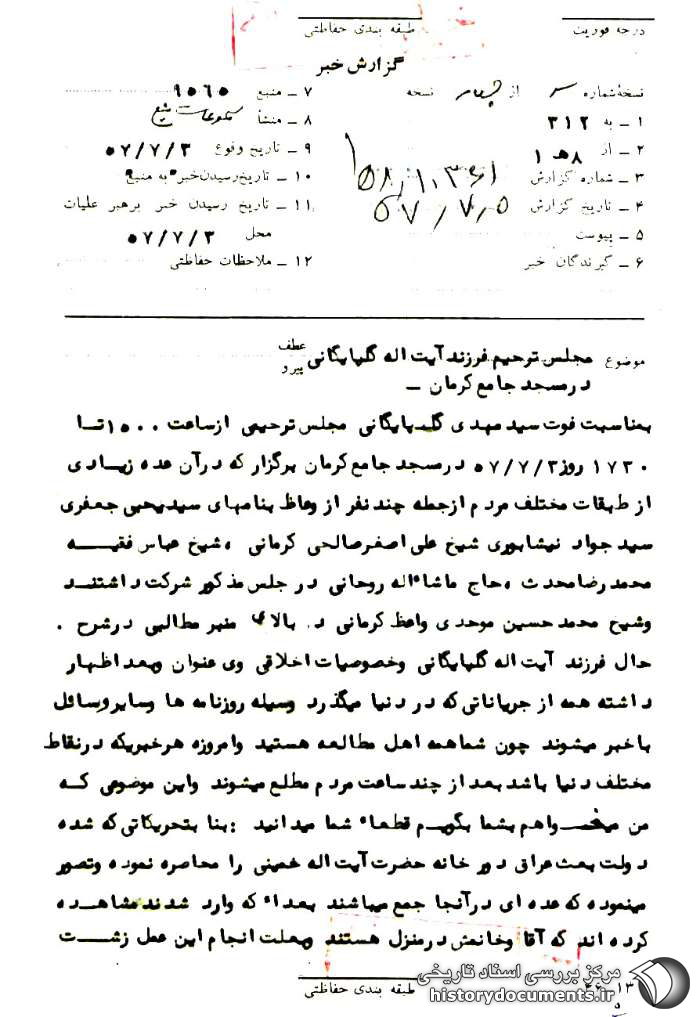 درجه فوریت
طبقه بندی حفاظتی
گزارش خبر
نسخهٔ شماره ۳ از چهار نسخه
۱ ـ به ۳۱۲
۲ ـ از ۸ هـ ۱
۳ ـ شماره گزارش
۴ ـ تاریخ گزارش ۵۷٫۷٫۵
۵ ـ پیوست
۶ ـ گیرندگان خبر
۷ ـ منبع ۹۵۶۵
۸ ـ منشأ
۹ ـ تاریخ وقوع ۵۷/۷/۳
۱۰ ـ تاریخ رسیدن خبر به منبع
۱۱ ـ تاریخ رسیدن خبر برهبر عملیات
محل ۵۷/۷/۳
۱۲ ـ ملاحظات حفاظتی
موضوع مجلس ترحیم فرزند آیت اله گلپایگانی
در مسجد جامع کرمان ـ
عطف
پیرو
بمناسبت فوت سید مهدی گلپایگانی مجلس ترحیمی از ساعت ۱۵۰۰ تا
۱۷۳۰ روز ۵۷/۷/۳ در مسجد جامع کرمان برگزار که در آن عده زیادی
از طبقات مختلف مردم از جمله چند نفر از وعاظ بنامهای سید یحیی جعفری
سید جواد نیشابوری شیخ علی اصغر صالحی کرمانی ، شیخ عباس فقیه
محمد رضا محدث ، حاج ماشاءاله روحانی در جلس مذکور شرکت داشتند
وشیخ محمد حسین موحدی واعظ کرمانی در بالای منبر مطالبی در شرح .
حال فرزند آیت اله گلپایگانی وخصوصیات اخلاقی وی عنوان وبعد اظهار
داشته همه از جریاناتی که در دنیا میگذرد وسیله روزنامه ها وسایر وسائل
با خبر میشوند چون شما همه اهل مطالعه هستید وامروزه هر خبریکه در نقاط
مختلف دنیا باشد بعد از چند ساعت مردم مطلع میشوند واین موضوعی که
من میخواهم بشما بگویم قطعاً شما میدانید : بنا بتحریکاتی که شده
دولت بعث عراق دور خانه حضرت آیت اله خمینی را محاصره نموده وتصور
مینموده که عده ای در آنجا جمع میباشند بعداً که وارد شدند مشاهده
کرده اند که آقا وخانمش در منزل هستند وبعلت انجام این عمل زشت
طبقه بندی حفاظتی
مرکز بررسی اسناد تاریخی
historydocuments.ir